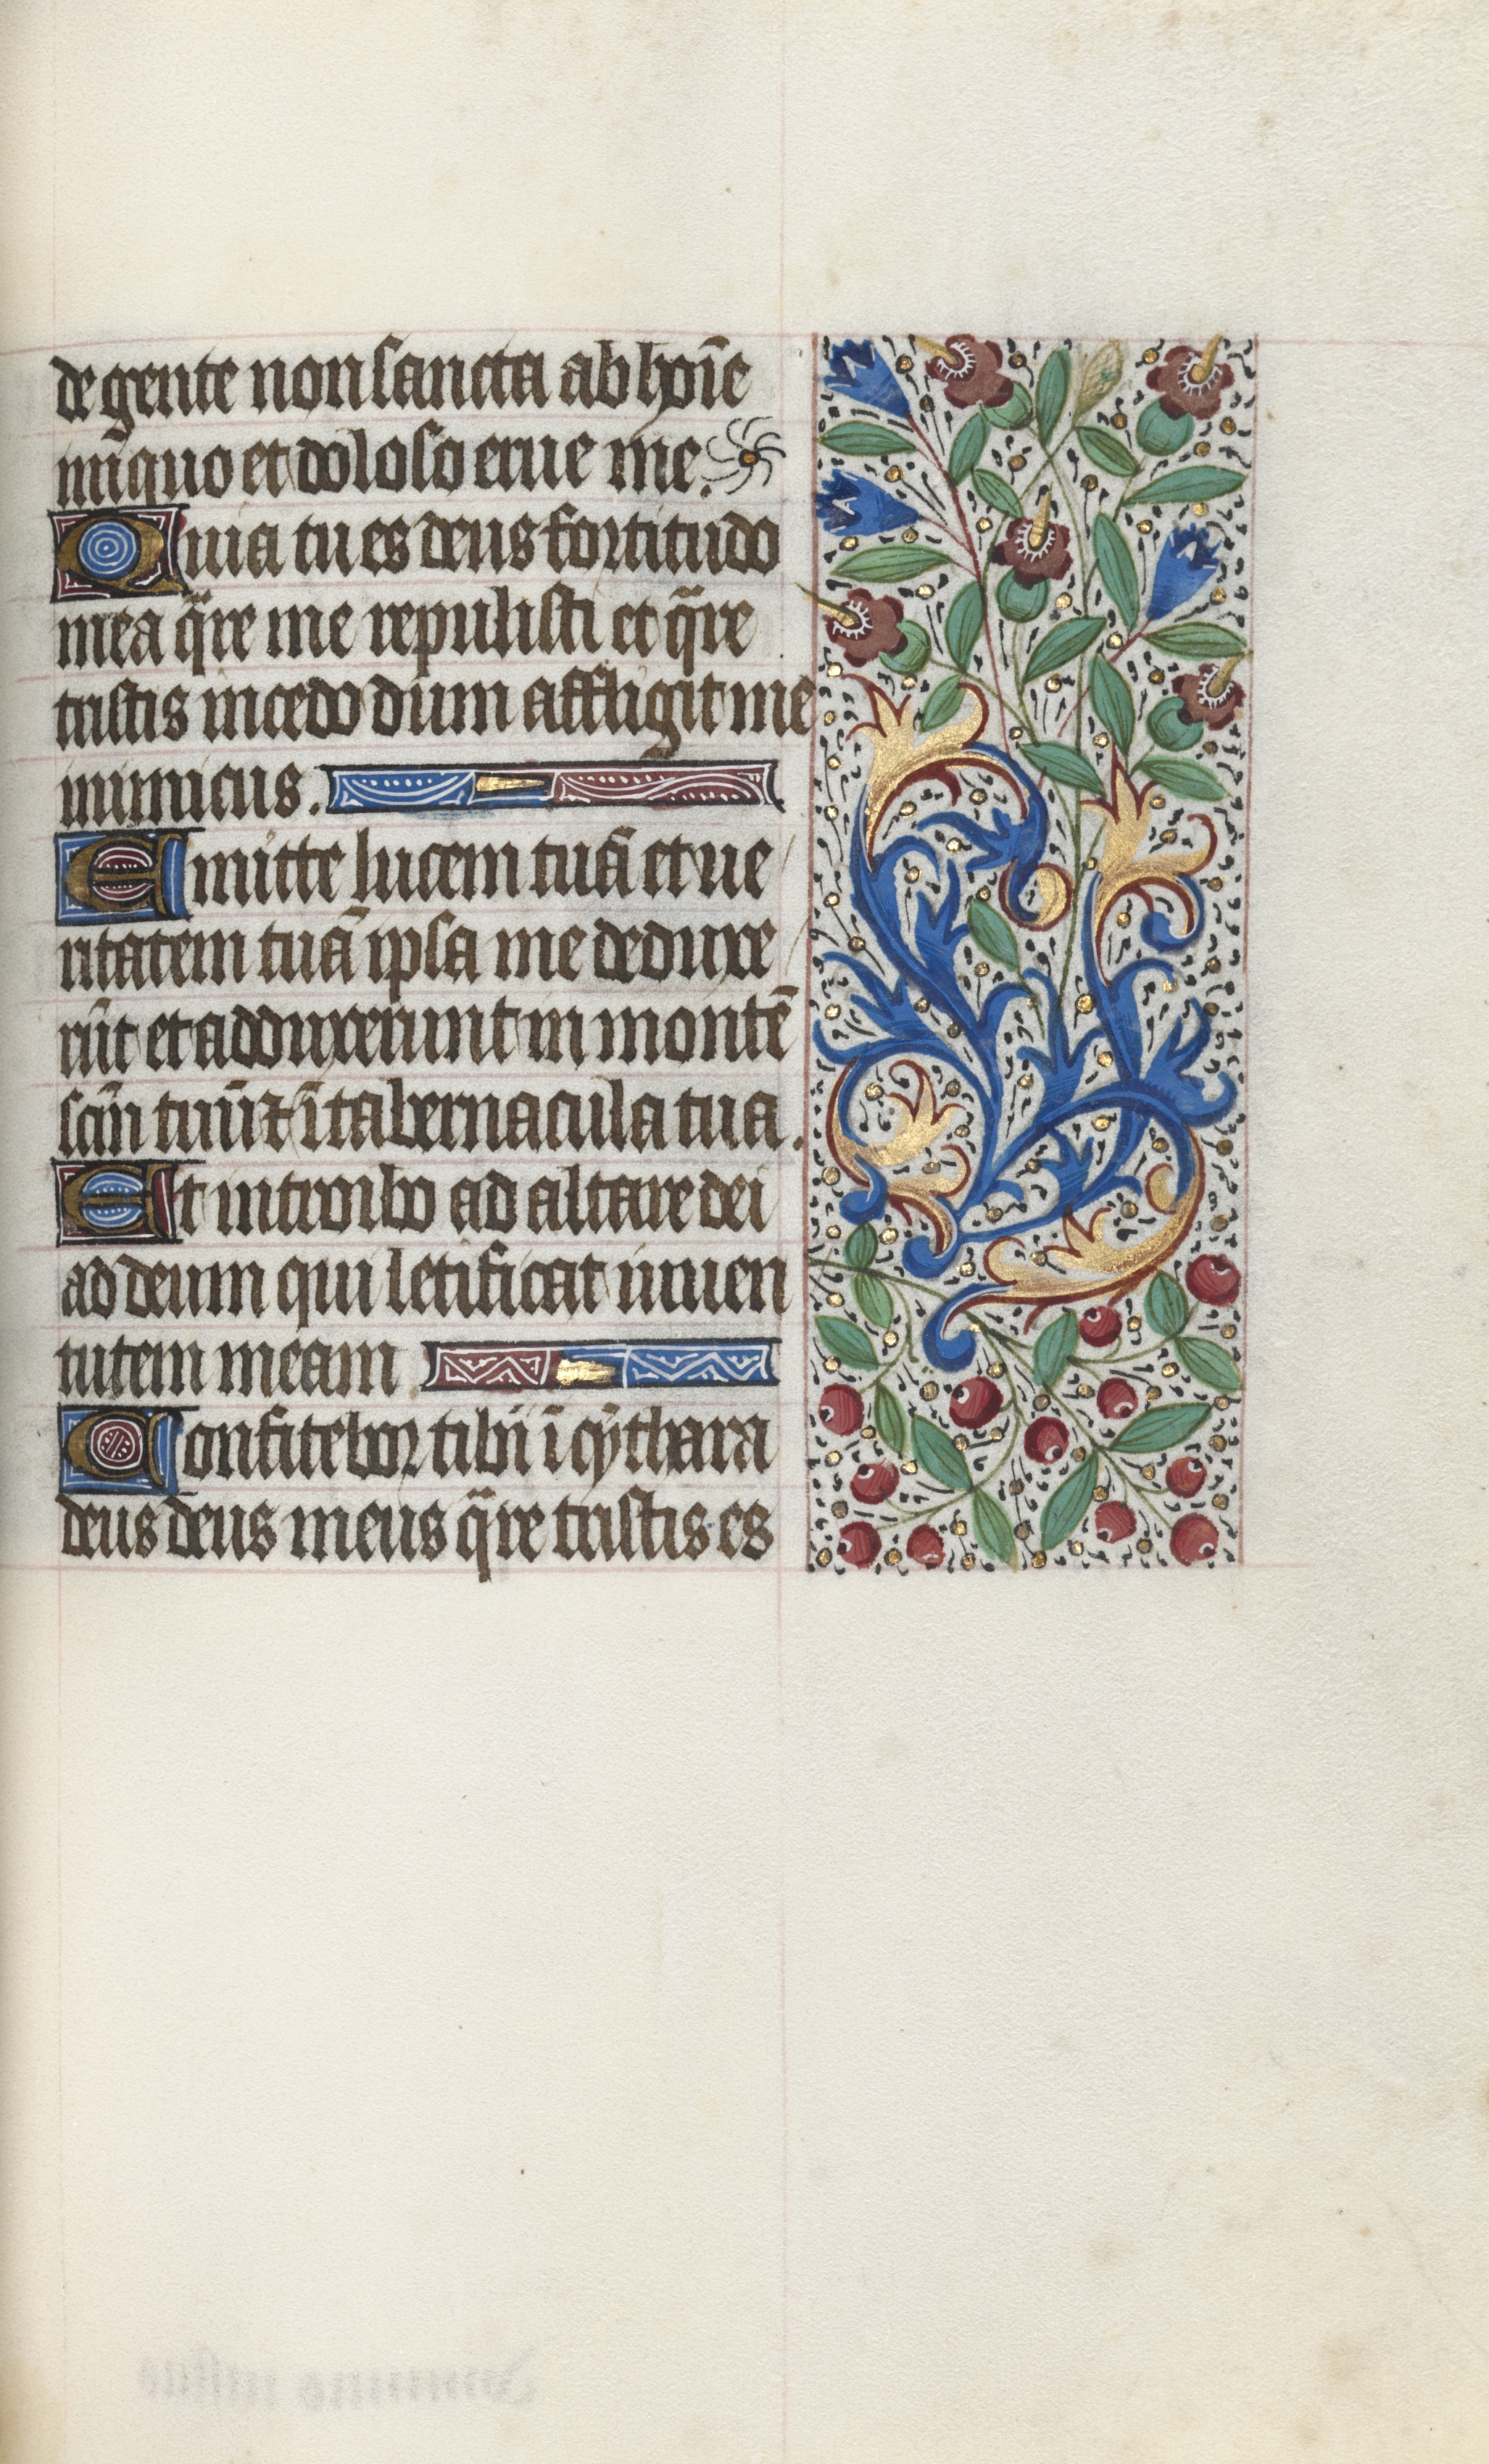 de gente non sancta ab hoı̄e
iniquo et doloso erue me.
Quia tu es deus fortitudo
mea q̄re me repulisti et q̄re
tristis incedo dum affligit me
inimicus.
Emitte lucem tuā et ue
ritatem tuā ipsa me deduxe
rūt et adduxerunt in montē
scm̄ tuū ⁊ ī tabernacula tua.
Et introibo ad altare dei
ad deum qui letificat iuuen
tutem meam
Confitebor tibi ī cythara
deus deus meus q̄re tristis es